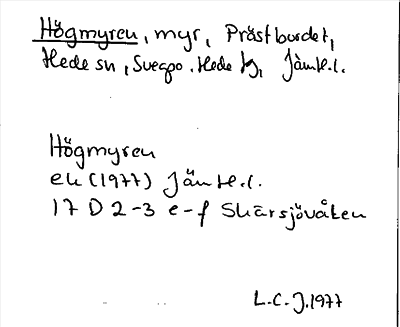 Högmyren, myr, Prästbordet,
Hede sn, Svegpo. Hede , Jämtl.l.
Högmyren
ek (1977) Jämtl.l.
17 D 2-3 e-f Skärsjövålen
L.C.J. 1977